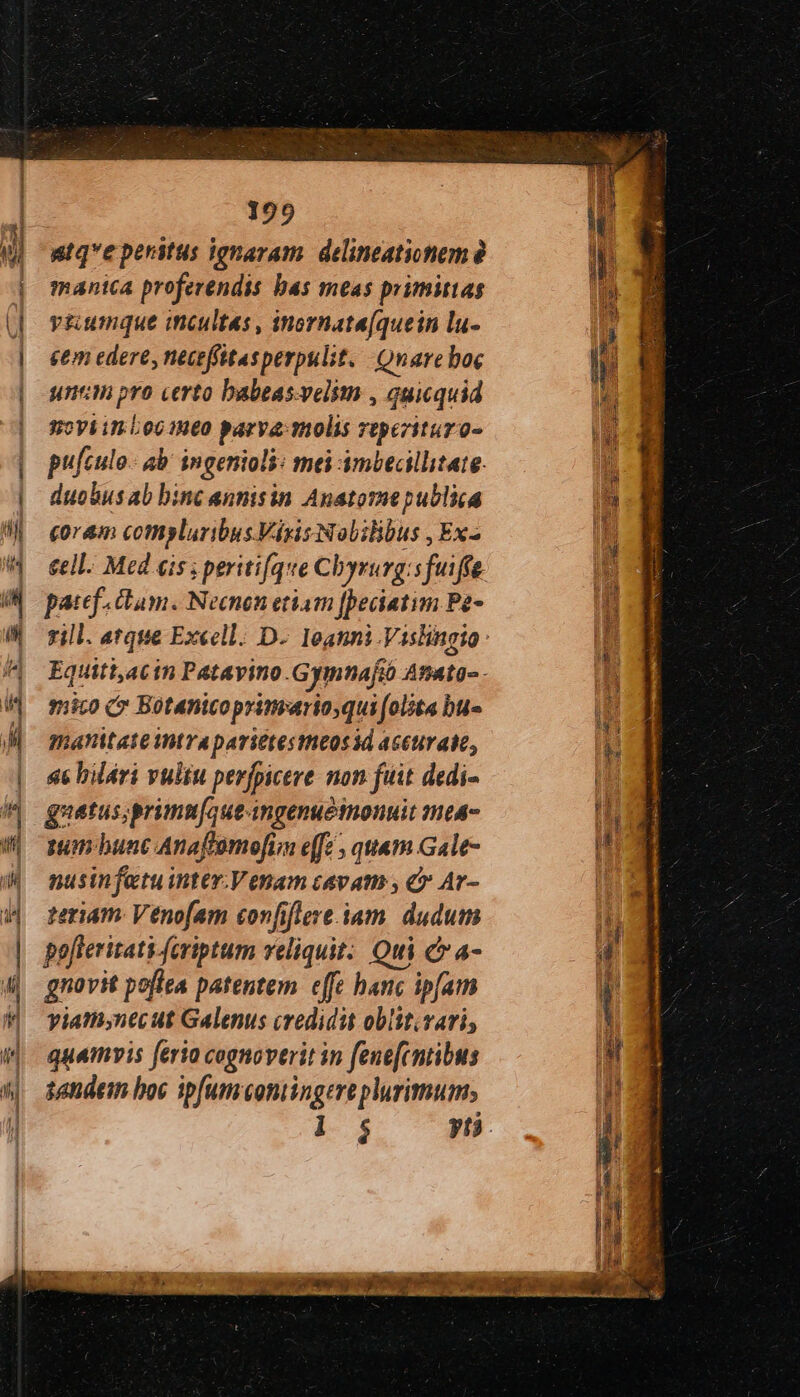 199
atq̃ue penitus ignaram delineationem è
manica proferendis has meas primitias
vtcumque incultas, inornataſque in lu-
cem edere, neceſſitas perpulit. Quare hoc
unum pro certo habeas velim, quicquid
novi in hoc meo parvæ molis reperitur o-
puſculo ab ingenioli mei imbecillitate
duobus ab hinc annis in Anatome publica
coram compluribus Viris Nobilibus, Ex-
cell. Med cis; peritiſque Chyrurg:s fuiſſe
patef. ctam. Necnon etiam ſpeciatim Pe-
rill. atque Excell. D. Ioanni Vislingio
Equiti, ac in Patavino Gymnaſio Anato-
mico & Botanico primario, qui ſolita hu-
manitate intra parietes meos id accurate,
ac hilari vultu perſpicere non fuit dedi-
gnatus, primuſque ingenuè monuit mea-
tum hunc Anaſtomoſim eſſe, quam Gale-
nus in fœtu inter Venam cavam, & Ar-
teriam Venoſam conſiſtere iam dudum
poſteritati ſcriptum reliquit: Qui & a-
gnovit poſtea patentem eſſe hanc ipſam
viam, nec ut Galenus credidit oblit.rari,
quamvis ſerio cognoverit in ſeneſcntibus
tandem hoc ipſum contingere plurimum,
l 5 vti